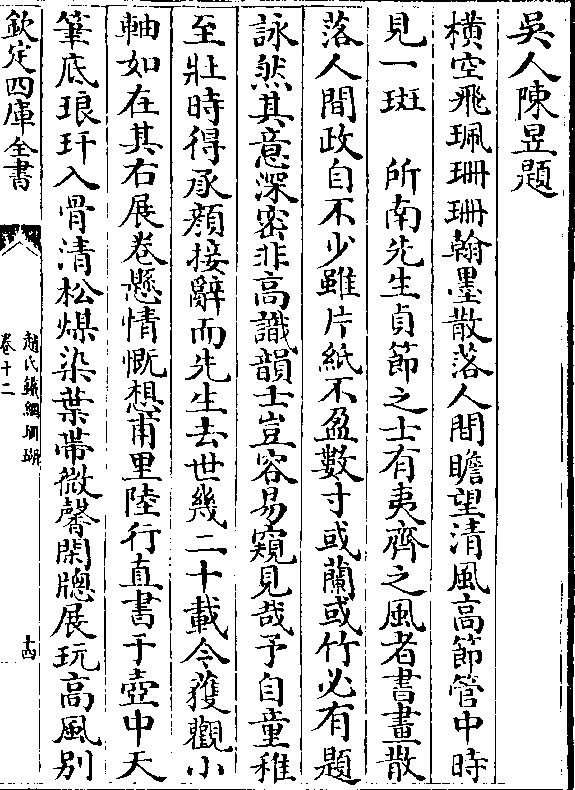 吳人陳昱題
橫空飛珮珊珊翰墨散落人間瞻望清風高節管中時
見一斑　所南先生貞節之士有夷齊之風者書畫散
落人間政自不少雖片紙不盈數寸或蘭或竹必有題
詠然其意深密非高識韻士豈容易窺見哉予自童稚
至壯時得承顏接辭而先生去世幾二十載今獲觀小
軸如在其右展卷懸情慨想甫里陸行直書于壺中天
筆底琅玕入骨清松煤染葉帶微馨閑牕展玩高風別
欽定四庫全書
趙氏鐵網珊瑚
卷十二
十四